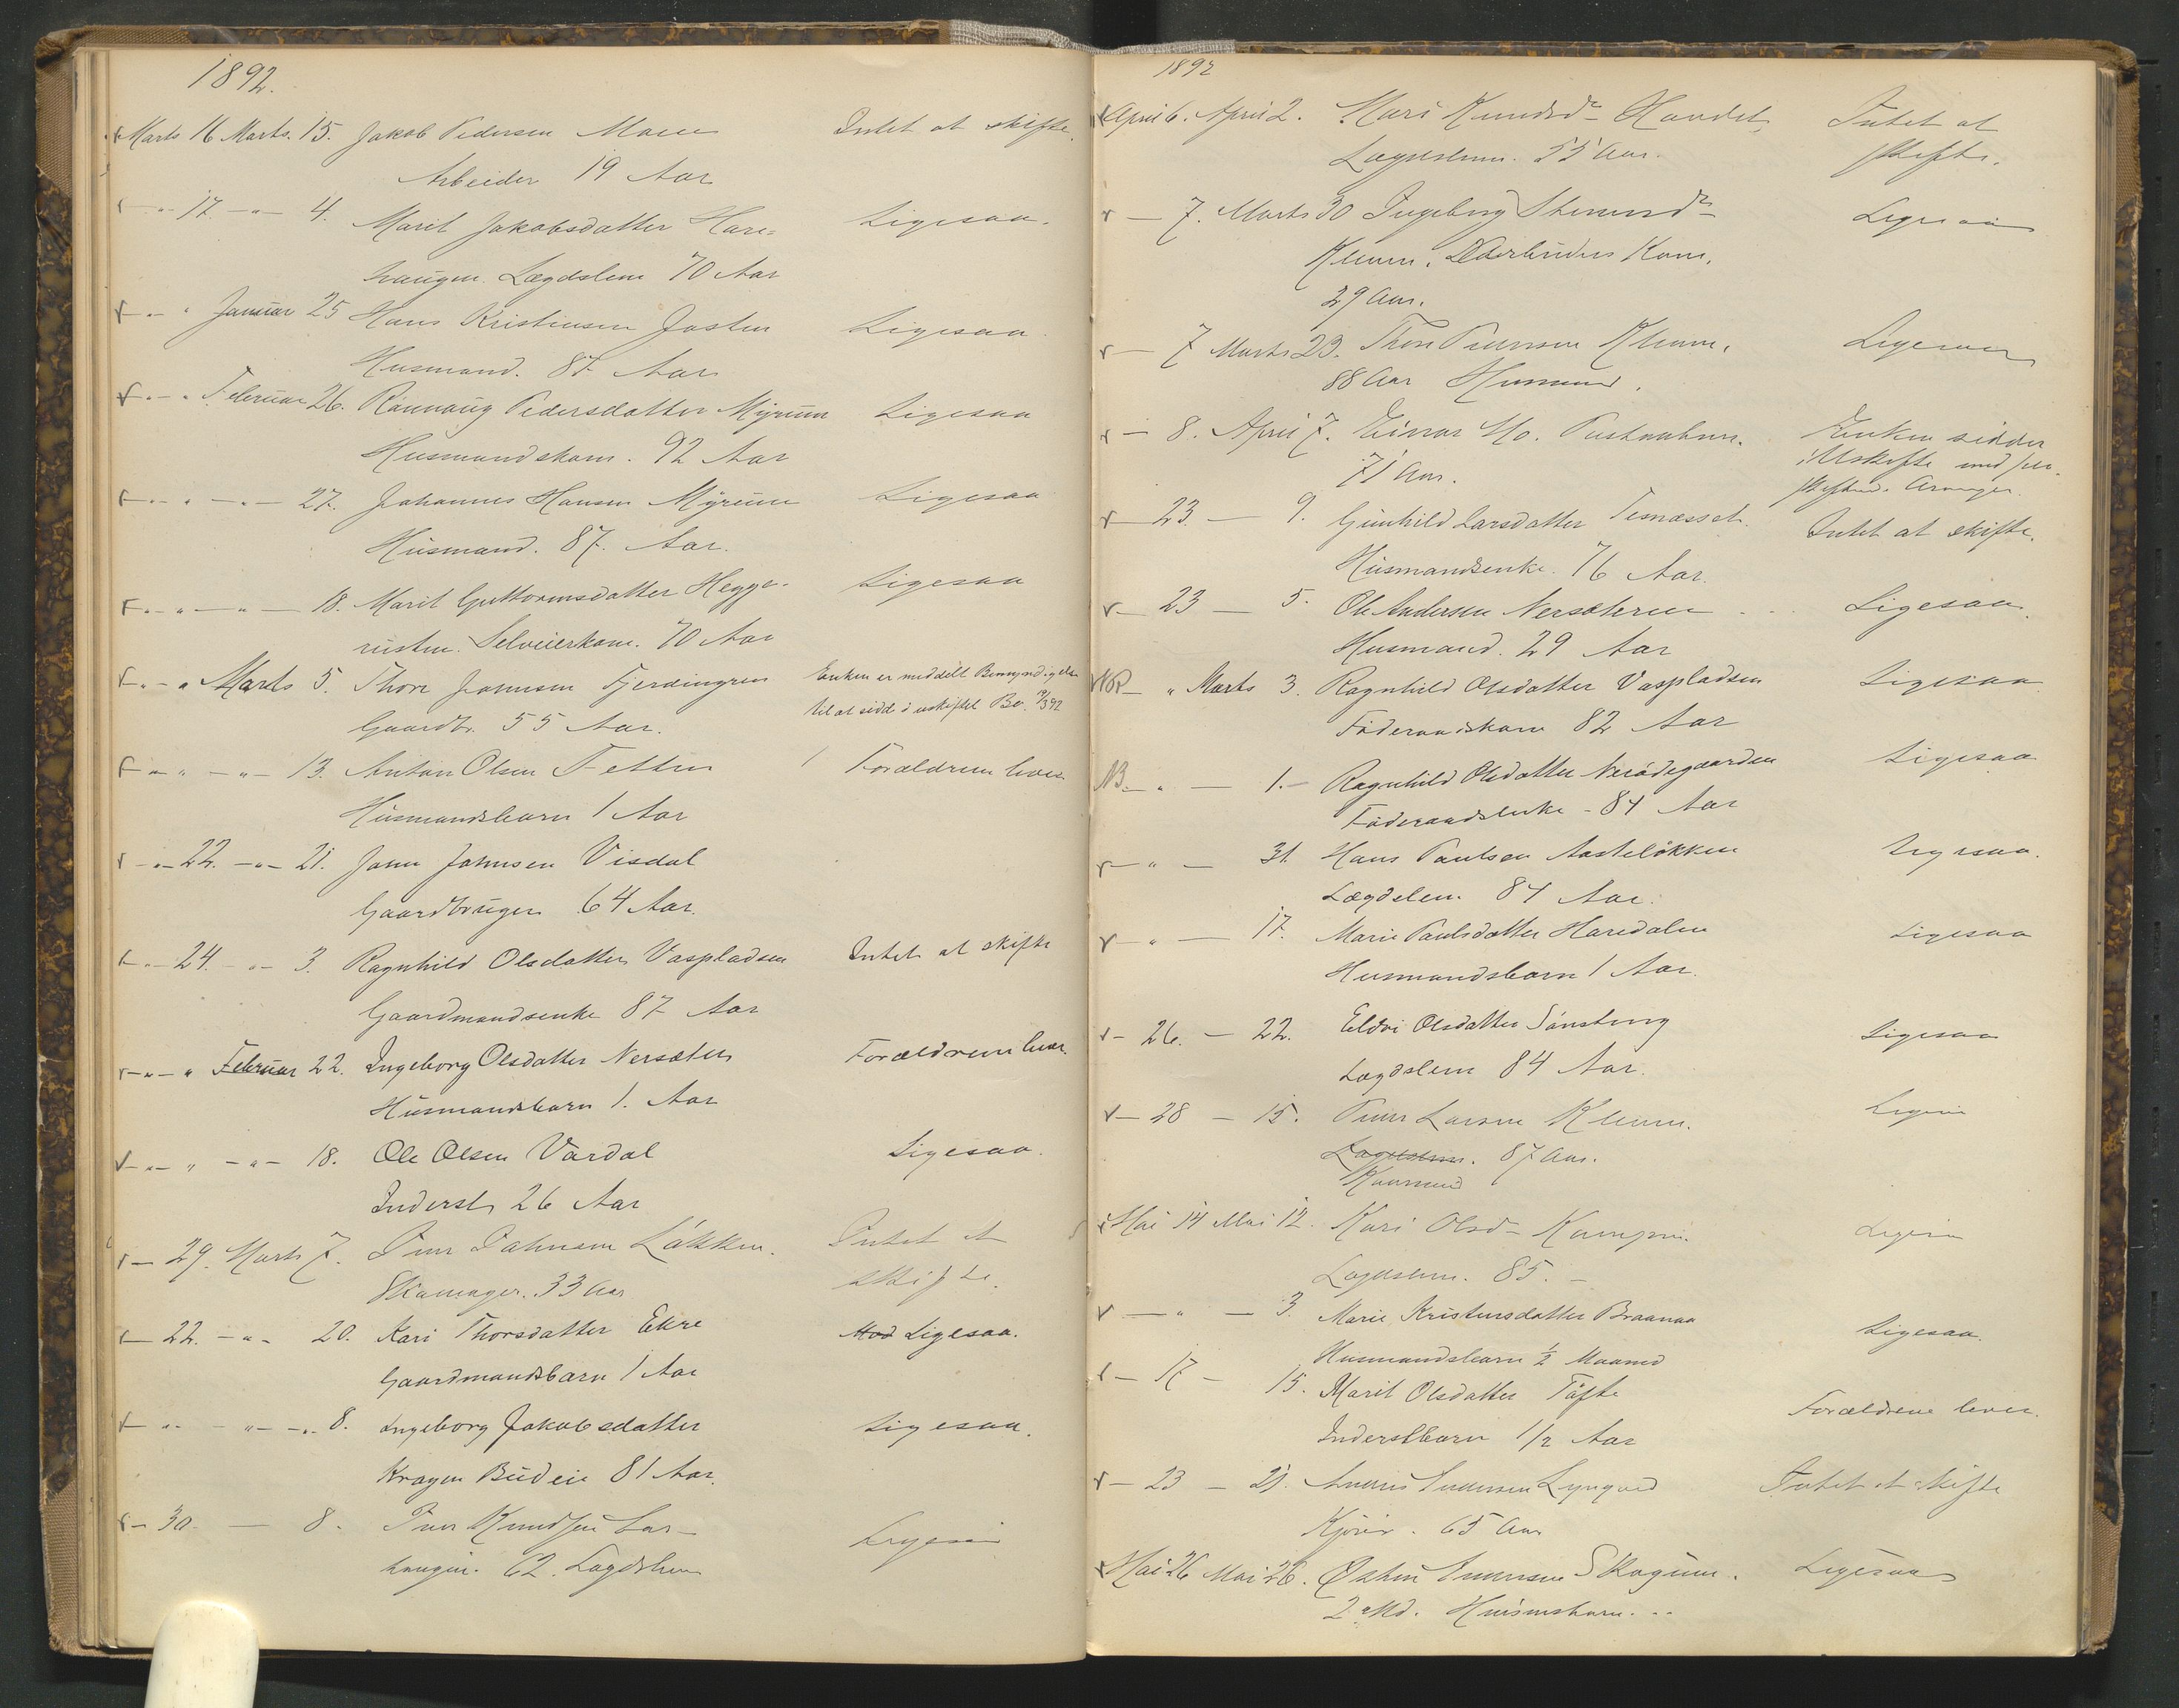 1892.
Marts 16 Marts. 15. Jakob Pedersen Moen Intet at skifte.
Arbeider 19 Aar
" 17. " 4. Marit Jakobsdatter Hare= Ligesaa.
haugen. Lægdslem 70 Aar
" Januar 25 Hans Kristiensen Josten Ligesaa
Husmand. 87 Aar
" Februar 26. Rannaug Pedersdatter Myrum Ligesaa
Husmandskone. 92 Aar
" " 27. Johannes Hansen Myrum Ligesaa
Husmand. 87. Aar.
" " 18. Marit Guttormsdatter Hegge- Ligesaa
rusten. Selveierkone. 70 Aar
" Marts 5. Thor Johnsen Fjerdingren Enken er meddelt Bemyndigelse
Gaardbr. 55 Aar. til at sidde i uskiftet Bo.
" " 13. Anton Olsen Fetten Forældrene lever
Husmandsbarn 1 Aar
" 22. " 21. John Johnsen Visdal
Gaardbruger 64 Aar.
" 24. " 3. Ragnhild Olsdatter Vaspladsen Intet at skifte
Gaardmandsenke 87 Aar
" " Februar 22. Ingeborg Olsdatter Nersæter Forældrene lever.
Husmandsbarn 1. Aar
" " 18. Ole Olsen Vardal Ligesaa.
Inderst 26 Aar
29. Marts 7. Iver Løkken. Intet at
Skomager. 33 Aar skifte.
22. " 20. Kari Thorsdatter Ekre Ligesaa.
Gaardmandsbarn 1 Aar
" " 8. Ingeborg Jakobsdatter Ligesaa.
Kragen Budeie 81 Aar.
30. 8. Iver Knudsen Lar-
haugen. 62. Lægdslem
1892
April 6. April 2. Mari Knudsdr Intet at
Lægdslem. 55 Aar. skifte.
7. Marts 30 Ingeborg Ligesaa
Kleven. Kone.
29 Aar.
7 Marts 23. Thor Iversen Kleven. Ligesaa
88 Aar Husmand.
8. April 7. Einar Mo. Enken sidder
71 Aar. i Uskifte med
Arvinger.
23. 9. Gunhild Larsdatter Tesnæsset. Intet at skifte.
Husmandsenke. 76 Aar.
23 5. Ole Andersen Nersæteren Ligesaa.
Husmand. 29 Aar
NB " Marts 3. Ragnhild Olsdatter Vaspladsen Ligesaa.
Føderaadskone 82 Aar
NB. " 1. Ragnhild Olsdatter Nerødegaarden Ligesaa
Føderaadsenke 84 Aar
" 31. Hans Paulsen Aasteløkken Ligesaa.
Lægdslem. 84 Aar.
" 17. Marie Paulsdatter Haredalen Ligesaa
Husmandsbarn 1 Aar.
26. 22. Eldri Olsdatter Sønsteng Ligesaa
Lægdslem 84 Aar.
28 15. Iver Larsen Kleven.
Lægdslem. 87 Aar.
Mai 14 Mai 12. Kari Olsdr
Lægdslem. 85.
" 3. Marie Kristensdatter Braanaa Ligesaa.
Husmandsbarn 1/2 Maaned
17 15. Marit Olsdatter Tøfte Forældrene lever.
Inderstbarn 1/2 Aar
23 21. Lyngved Intet at skifte
65 Aar
Mai 26 Mai 26. Østen Iversen Skogum. Ligesaa
2 Md.